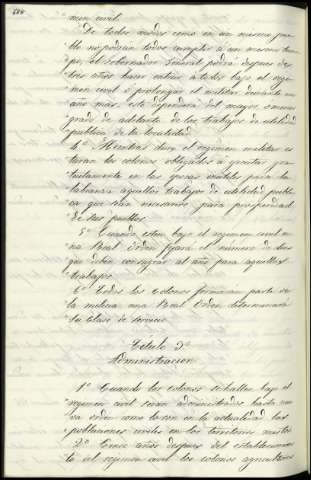 men civil.
De todos modos como en un mismo pue-
blo no podrian todos cumplir a un mismo tiem-
po, el Gobernador General podrá despues de
tres años hacer entrar á todos bajo el regi-
men civil ó prolongar el militar durante un
año mas. esto dependerá del mayor ó menor
grado de adelanto de los trabajos de utilidad
publica de la localidad.
4º Mientras dure el regimen militar es-
taran los colonos obligados á prestar gra-
tuitamente en las epocas inutiles para la
labranza aquellos trabajos de utilidad publi-
ca que sean necesarios, para prosperidad
de sus pueblos.
5º Cuando esten bajo el regimen civil u-
na Real Orden fijará el numero de dias
que deben consagrar al año para aquellos
trabajos.
6º Todos los Colonos formarán parte de
la milicia. una Real Orden determinará
su clase de servicio.
Titulo 9º
Administracion
1º Cuando los colonos se hallen bajo el
regimen civil seran administrados, hasta nue-
va orden como lo son en la actualidad las
poblaciones civiles en los territorios mistos
2º Cinco años despues del establecimien-
to al regimen civil los colonos agricultores